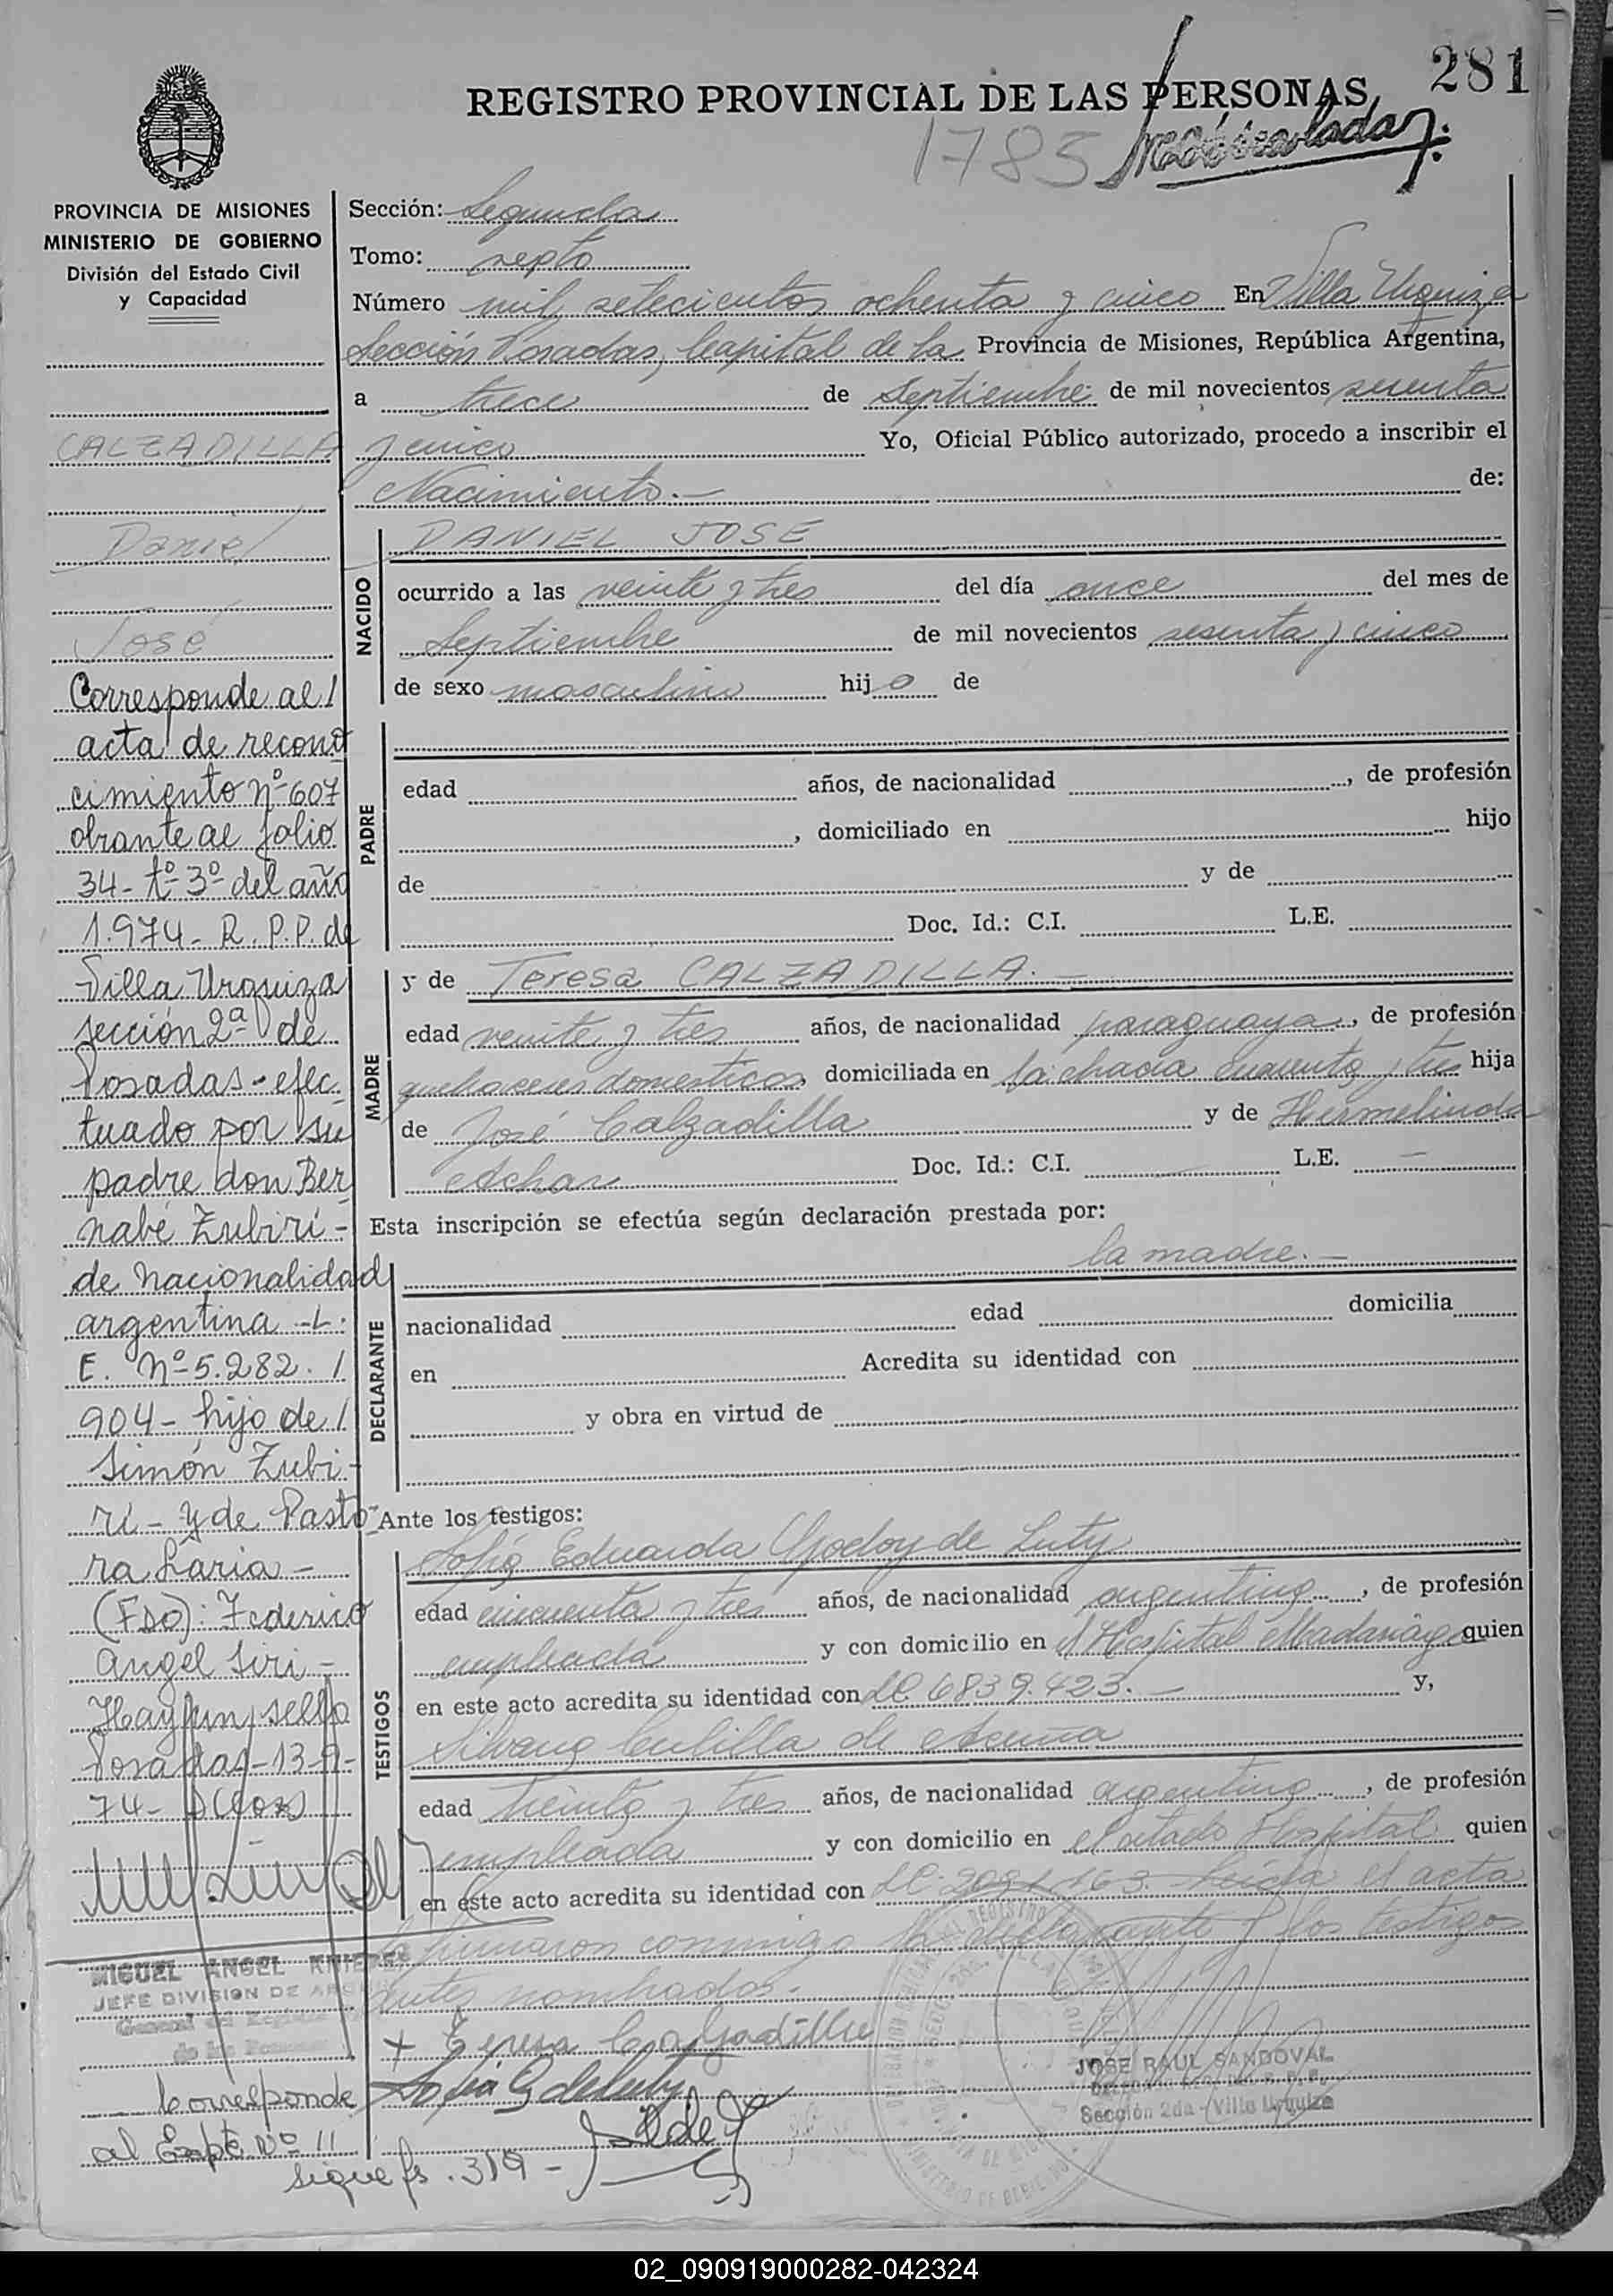 281
REGISTRO PROVINCIAL DE LAS PERSONAS
1785
PROVINCIA DE MISIONES
MINISTERIO DE GOBIERNO
División del Estado Civil
y Capacidad
CALZADILLA
Daniel
José
Corresponde al /
acta de recono
cimiento nº 607
obrante al folio
34 - tº 3º del año
1.974 - R. P. P. de
Villa Urquiza
sección 2ª de
Posadas - efec
tuado por su
padre don Ber
nabé Zubirí -
de nacionalidad
argentina - L.
E. Nº 5.282. /
904 - hijo de /
Simón Zubi-
rí - y de Pasto-
ra Laria -
(FDO): Federico
Angel Siri -
Hay un sello
Posadas - 13-9-
74 -
MIGUEL ANGEL
JEFE DIVISION DE
General del Registro
de las Personas
Corresponde
al Expte Nº 11
sigue fs. 319 -
Sección: Segunda
Tomo: septo
Número mil setecientos ochenta y cinco En Villa Urquiza
Sección Posadas, Capital de la Provincia de Misiones, República Argentina,
a trece de Septiembre de mil novecientos sesenta
y cinco Yo, Oficial Público autorizado, procedo a inscribir el
Nacimiento.- de:
NACIDO
DANIEL JOSE
ocurrido a las veinte y tres del día once del mes de
Septiembre de mil novecientos sesenta y cinco
de sexo masculino hijo de
PADRE
edad años, de nacionalidad , de profesión
, domiciliado en hijo
de y de
Doc. Id.: C.I. L.E.
MADRE
y de Teresa CALZADILLA.-
edad veinte y tres años, de nacionalidad paraguaya, de profesión
quehaceres domesticos, domiciliada en la chacra cuarenta y tres hija
de José Calzadilla y de Hermelinda
Doc. Id.: C.I. L.E. -
Esta inscripción se efectúa según declaración prestada por:
la madre.-
DECLARANTE
nacionalidad edad domicilia
en Acredita su identidad con
y obra en virtud de
Ante los testigos:
TESTIGOS
Sofía Eduarda Godoy de Luty
edad cincuenta y tres años, de nacionalidad argentina, de profesión
empleada y con domicilio en el Hospital Madariaga quien
en este acto acredita su identidad con LC 6839.423.- y,
Silvana de Acuña
edad treinta y tres años, de nacionalidad argentina, de profesión
empleada y con domicilio en el citado Hospital quien
en este acto acredita su identidad con LC. Leída el acta
firmaron conmigo la declarante y los testigos
antes nombrados.-
+ Teresa Calzadilla
Sofia G de Luty
JOSE RAUL SANDOVAL
Sección 2da - Villa Urquiza
02_090919000282-042324